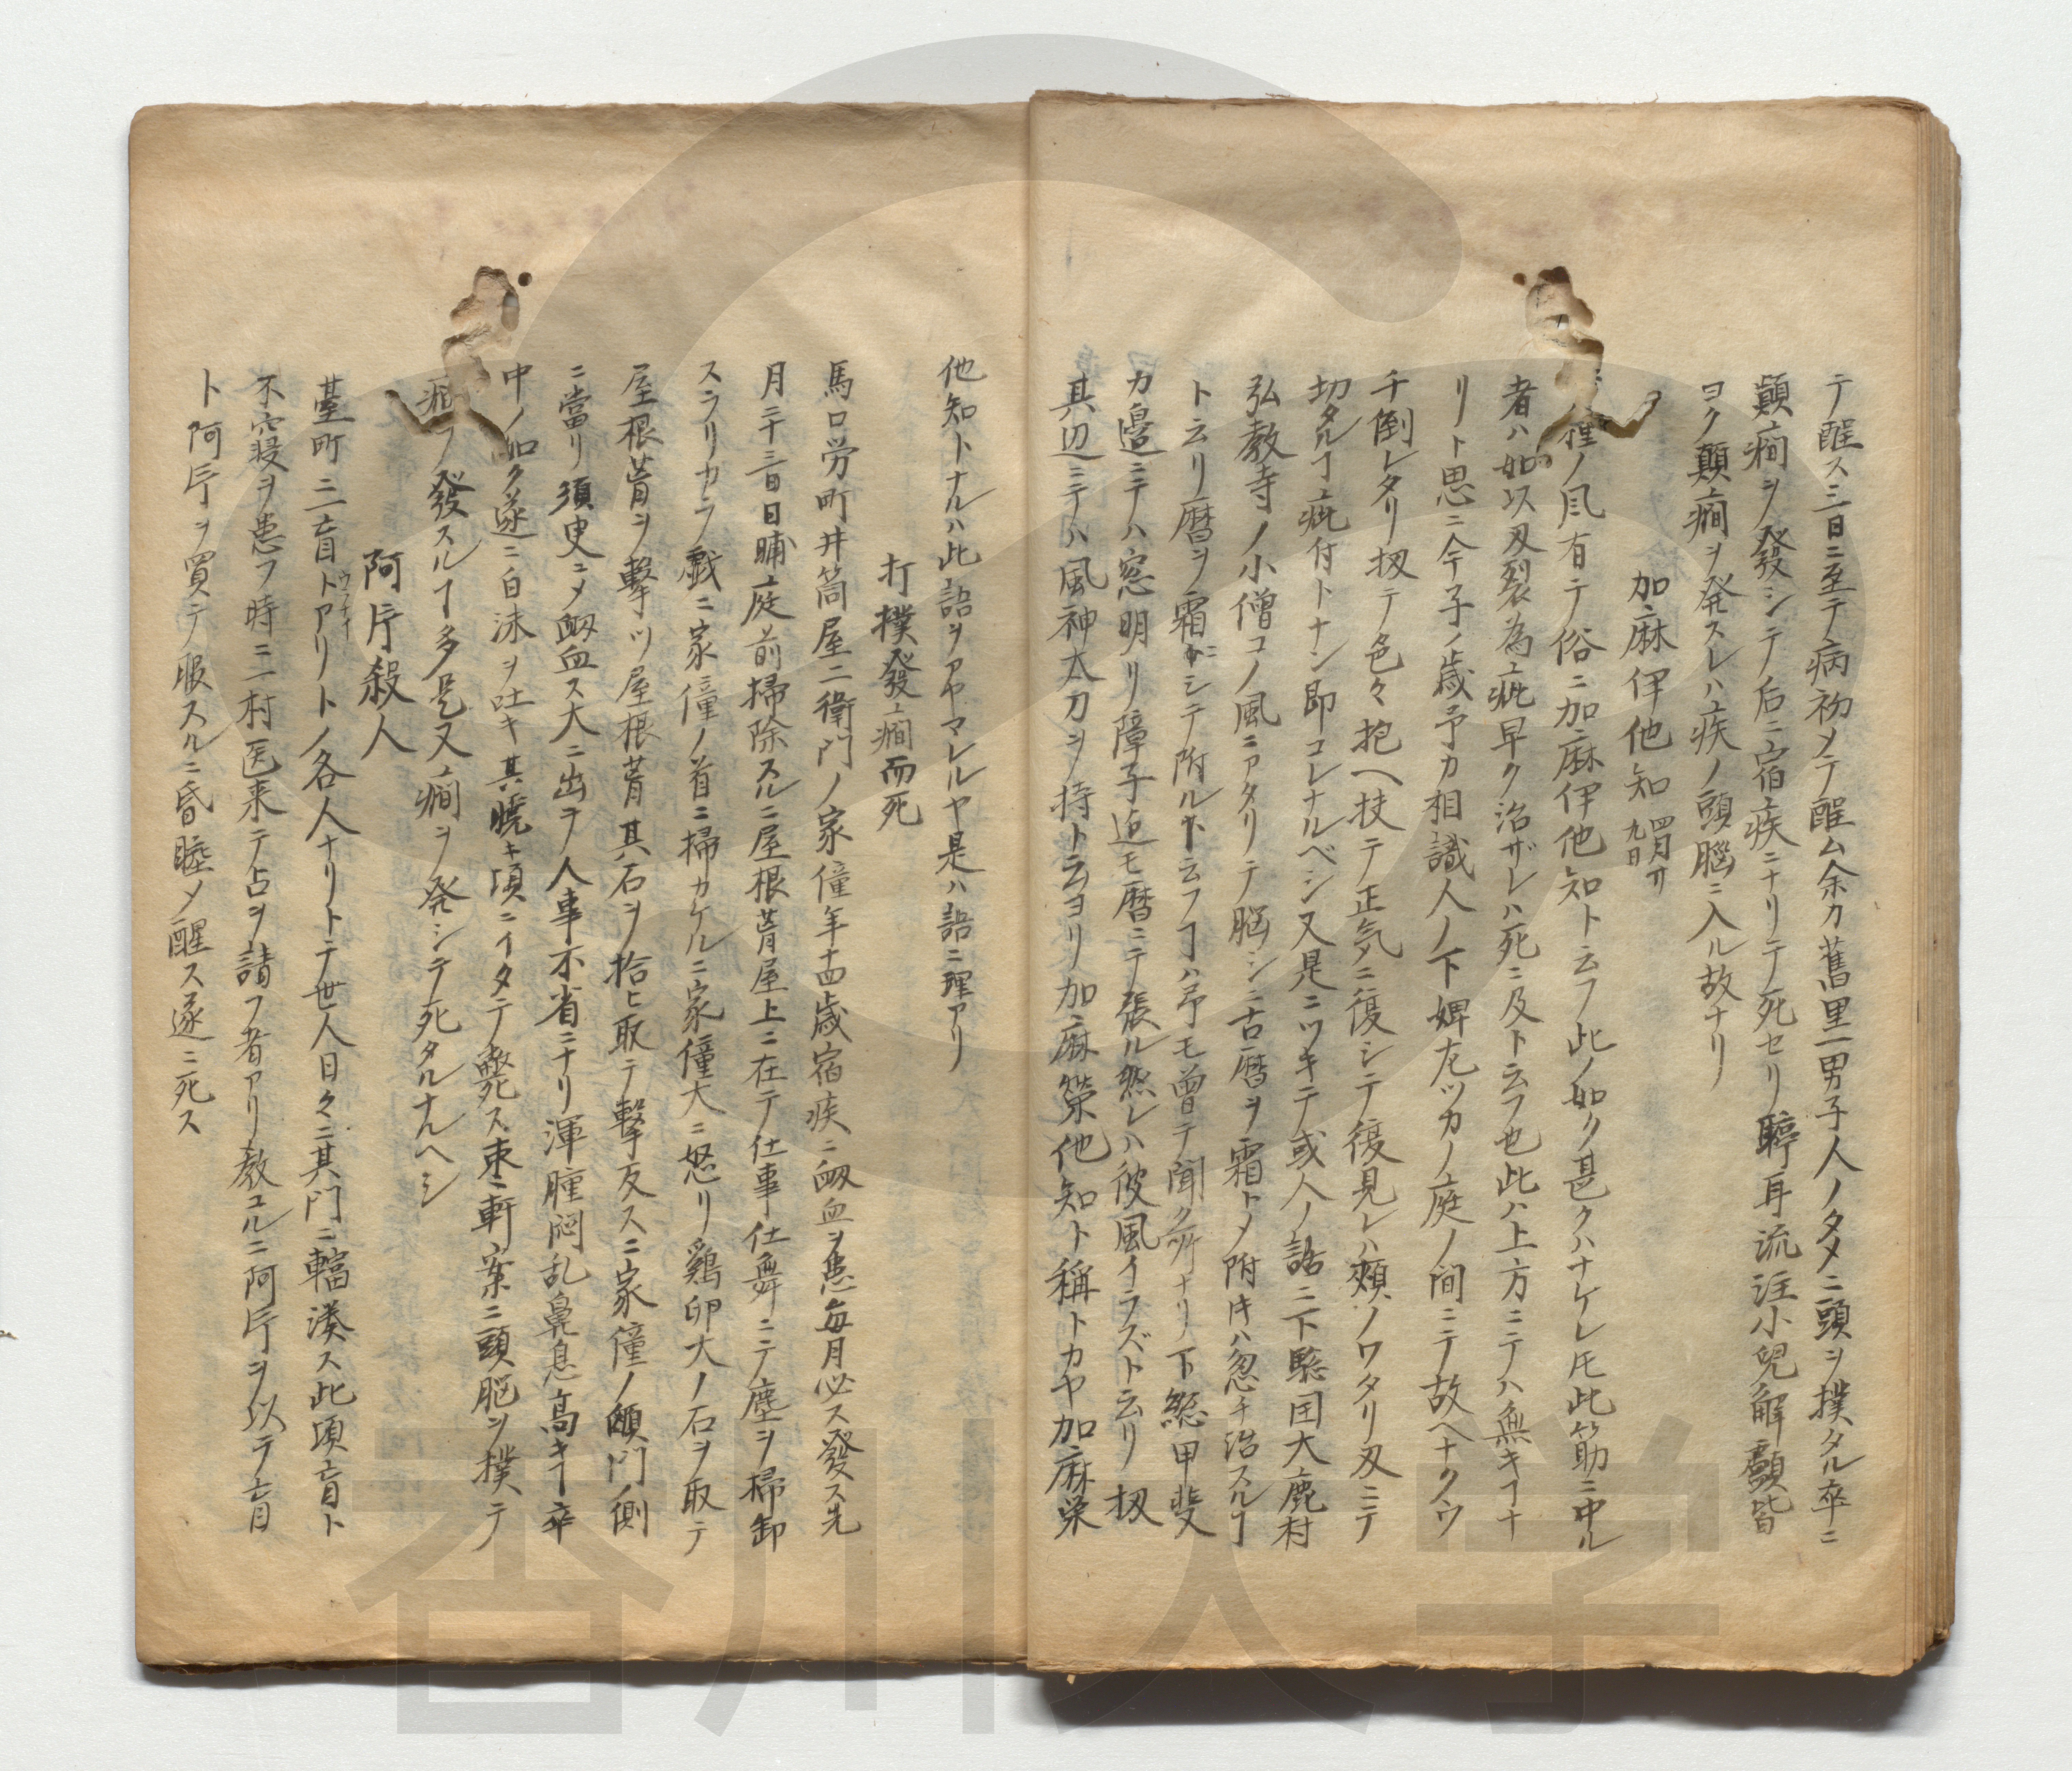 テ醒ス三日ニ至テ病初メテ醒ム余カ舊里一男子人ノタメニ頭ヲ撲タル卒ニ
顛癇ヲ發シテ后ニ宿疾ニナリテ死セリ聤耳流注小兒解顱皆
ヨク顛癇ヲ発スレハ疾ノ頭腦ニ入ル故ナリ
加麻伊他知 四月廿九日
ノ風有テ俗ニ加麻伊他知ト云フ此ノ如ク甚クハナケレ𪜈此筋ニ中ル
者ハ如以刄裂為疵早ク治ザレハ死ニ及ト云フ也此ハ上方ニテハ無キヿナ
リト思ニ今子ノ歳予カ相識人ノ下婢左ツカノ庭ノ間ニテ故ヘナクウ
チ倒レタリ扨テ色々抱ヘ扶テ正気ニ復シテ後見レハ頬ノワタリ刄ニテ
切タルヿ疵付トナン即コレナルベシ又是ニツキテ或人ノ話ニ下総国大鹿村
弘教寺ノ小僧コノ風ニアタリテ脳シニ古暦ヲ霜トメ附ケハ忽チ治スルヿ
ト云リ暦ヲ霜ニシテ附ルト云フヿハ予モ曾テ聞ク所ナリ下総甲斐
カ邉ニテハ窓明リ障子迄モ暦ニテ張ル然レハ彼風イラズト云リ扨
其辺ニテハ風神太刀ヲ持ト云ヨリ加麻榮他知ト稱トカヤ加麻栄
他知トナルハ此語ヲアヤマレルヤ是ハ語ニ理アリ
打撲發癇而死
馬口労町井筒屋二衛門ノ家僮年十四歳宿疾ニ衂血ヲ患毎月必ス發ス先
月二十三日日晡庭前掃除スルニ屋根葺屋上ニ在テ仕事仕舞ニテ塵ヲ掃卸
スラリカラ戯ニ家僮ノ首ニ掃カケルニ家僮大ニ怒リ鶏卵大ノ石ヲ取テ
屋根葺ヲ撃ツ屋根葺其石ヲ拾ヒ取テ撃反スニ家僮ノ顖門ノ側
ニ當リ須臾ニメ衂血ス大ニ出ヲ人事不省ニナリ渾腫悶乱鼻息高キヿ卒
中ノ如ク遂ニ白沫ヲ吐キ其暁キ頃ニイタテ斃ス東軒案ニ頭脳ヲ撲テ
ノ發スルヿ多是又癇ヲ発シテ死タルナルヘシ
阿片殺人
臺町ニ一盲ト(ウラナイ)アリトノ各人ナリトテ世人日々ニ其門ニ輻湊ス此頃盲ト
不寝ヲ患フ時ニ一村医来テ占ヲ請フ者アリ教ユルニ阿片ヲ以テ盲
ト阿片ヲ買テ服スルニ昏睡メ醒ス遂ニ死ス
香川大学